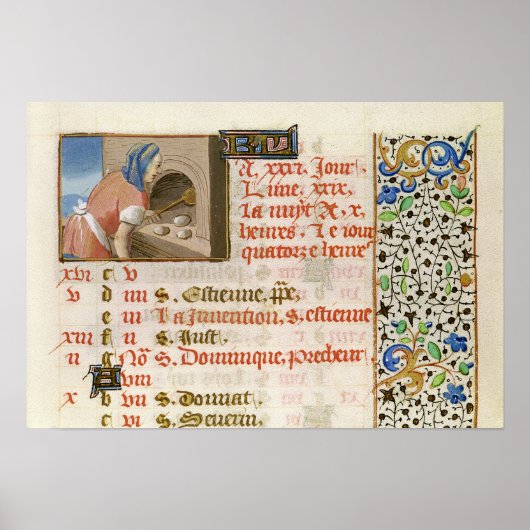 A, xxxi, Jour
Lune, xxix,
La nuyt A, x,
heures, Le iour
quatorze heure
xvi c v
v d iiii S. Estienne, ppe.
e iii La Invention, S. estienne
xiii f ii S. Just
ii g Nō S. Dominique, Precheur
A viii
x b vii S. Donnat
c vi S. Severin,